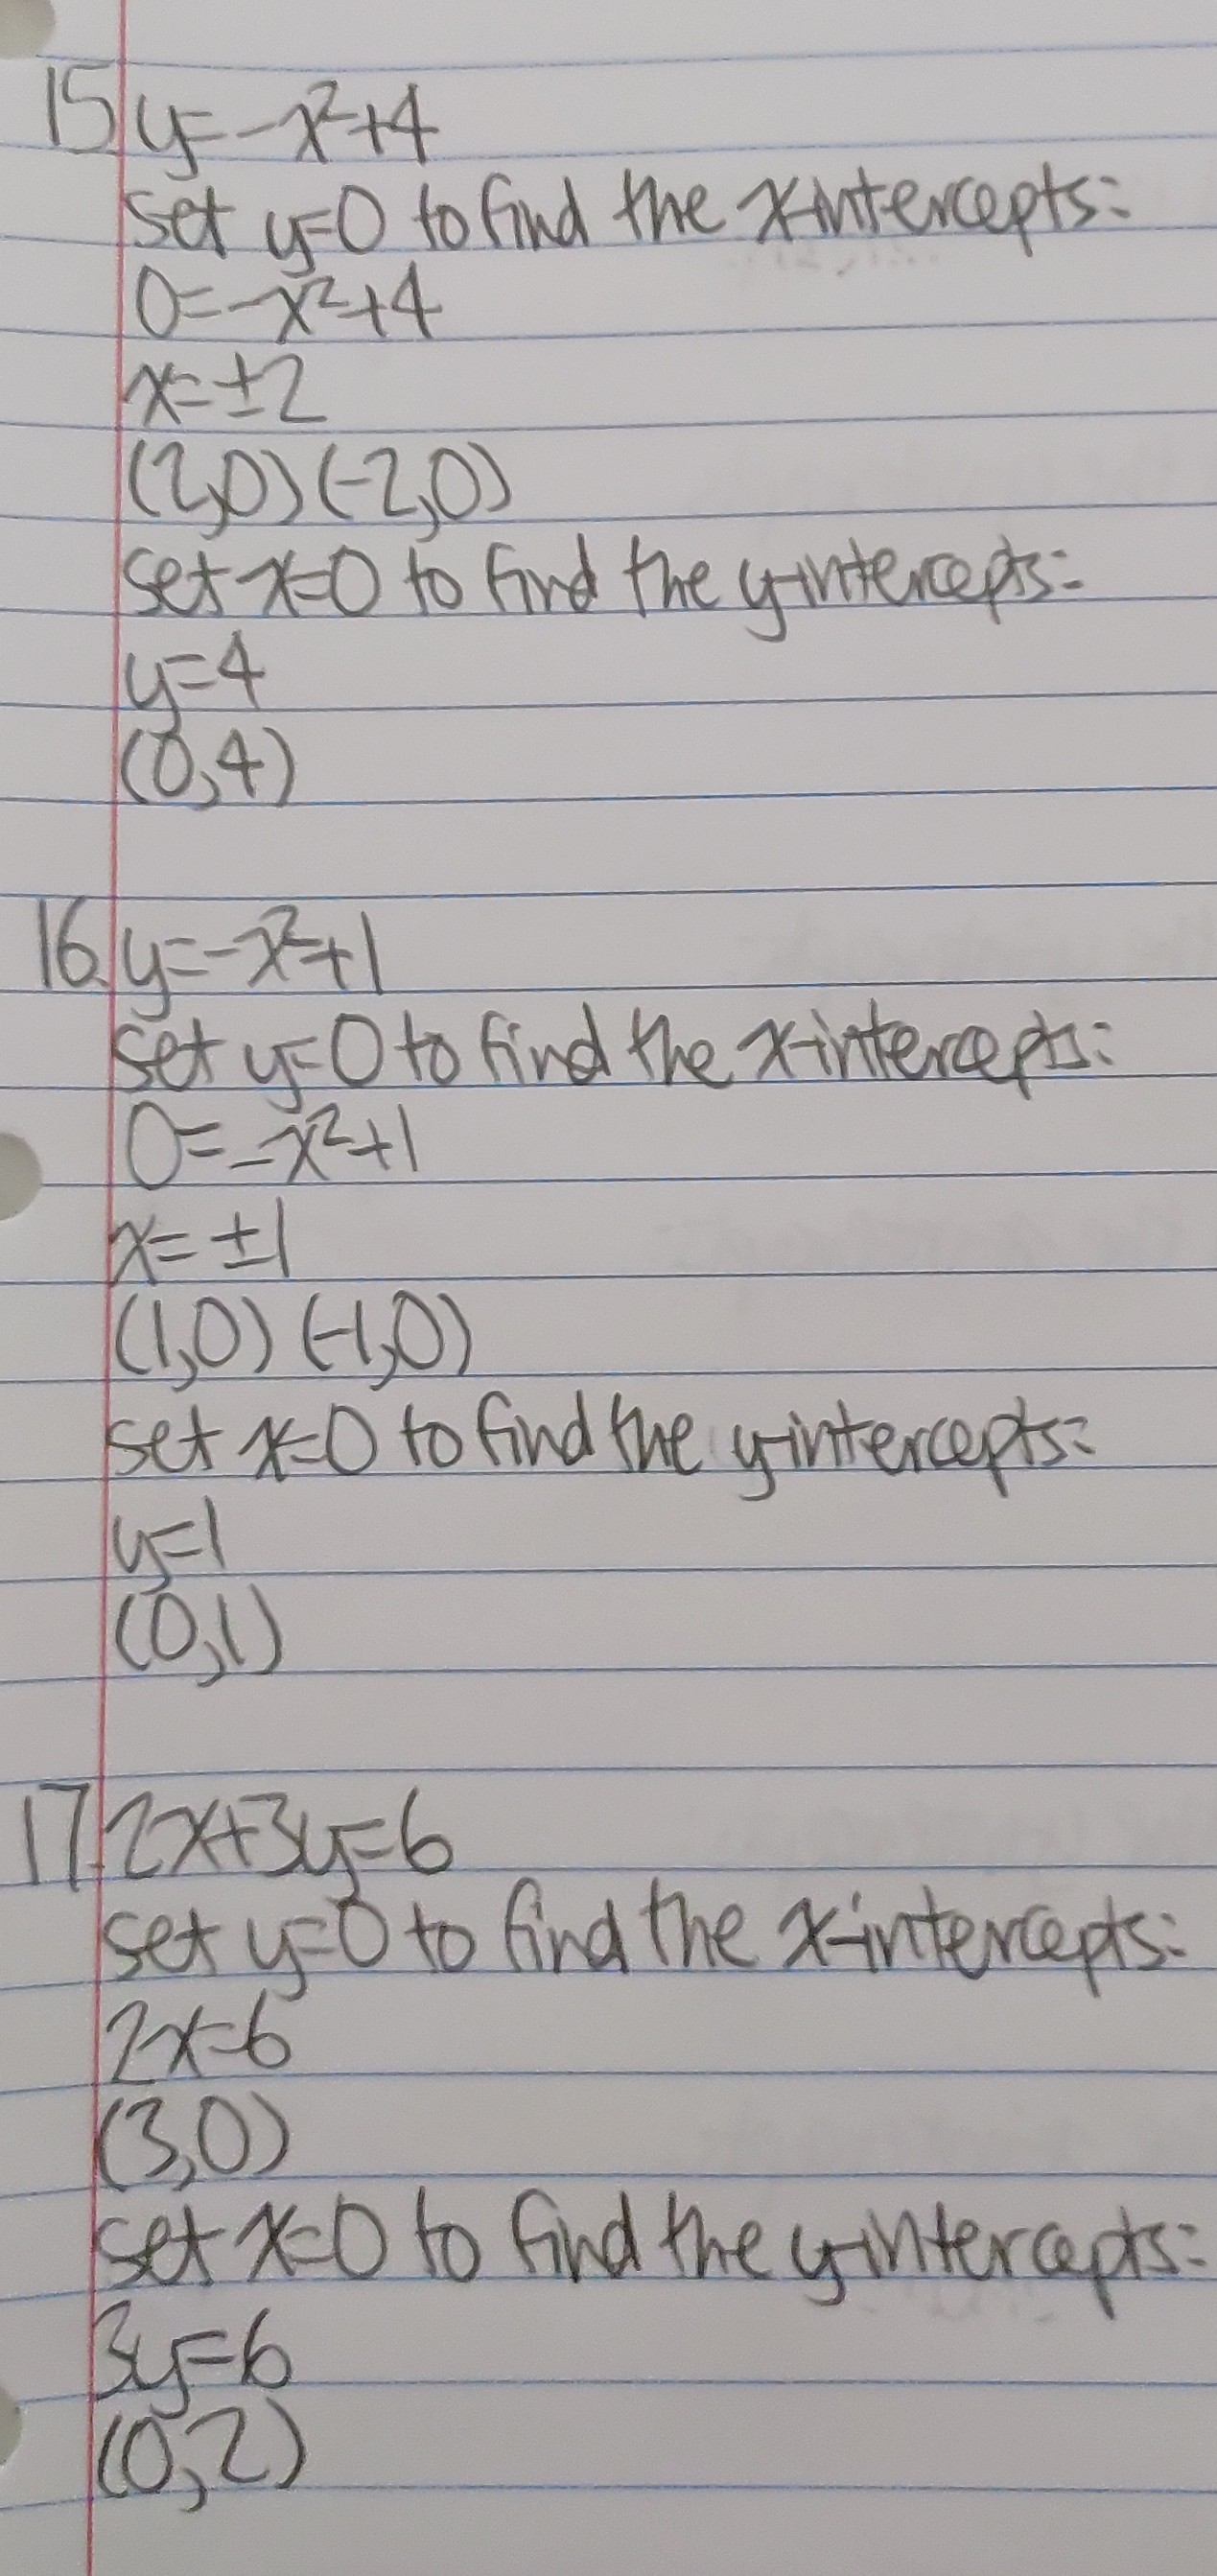 15. y=-x²+4
set y=0 to find the x-intercepts:
0=-x²+4
x=±2
(2,0) (-2,0)
set x=0 to find the y-intercepts:
y=4
(0,4)
16. y=-x²+1
set y=0 to find the x-intercepts:
0=-x²+1
x=±1
(1,0) (-1,0)
set x=0 to find the y-intercepts:
y=1
(0,1)
17. 2x+3y=6
set y=0 to find the x-intercepts:
2x=6
(3,0)
set x=0 to find the y-intercepts:
3y=6
(0,2)